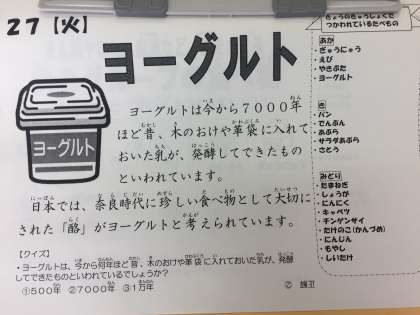 27【火】
ヨーグルト
ヨーグルト
ヨーグルトは今から7000年
ほど昔、木のおけや革袋に入れて
おいた乳が、発酵してできたもの
といわれています。
日本では、奈良時代に珍しい食べ物として大切に
された「酪」がヨーグルトと考えられています。
【クイズ】
・ヨーグルトは、今から何年ほど昔、木のおけや革袋に入れておいた乳が、発酵
してできたものといわれているでしょうか?
①500年 ②7000年 ③1万年
正解 ②
きょうのきゅうしょくで
つかわれているたべもの
あか
・ぎゅうにゅう
・えび
・やきぶた
・ヨーグルト
き
・パン
・でんぷん
・あぶら
・サラダあぶら
・さとう
みどり
・たまねぎ
・しょうが
・にんにく
・キャベツ
・チンゲンサイ
・たけのこ(かんづめ)
・にんじん
・もやし
・しいたけ